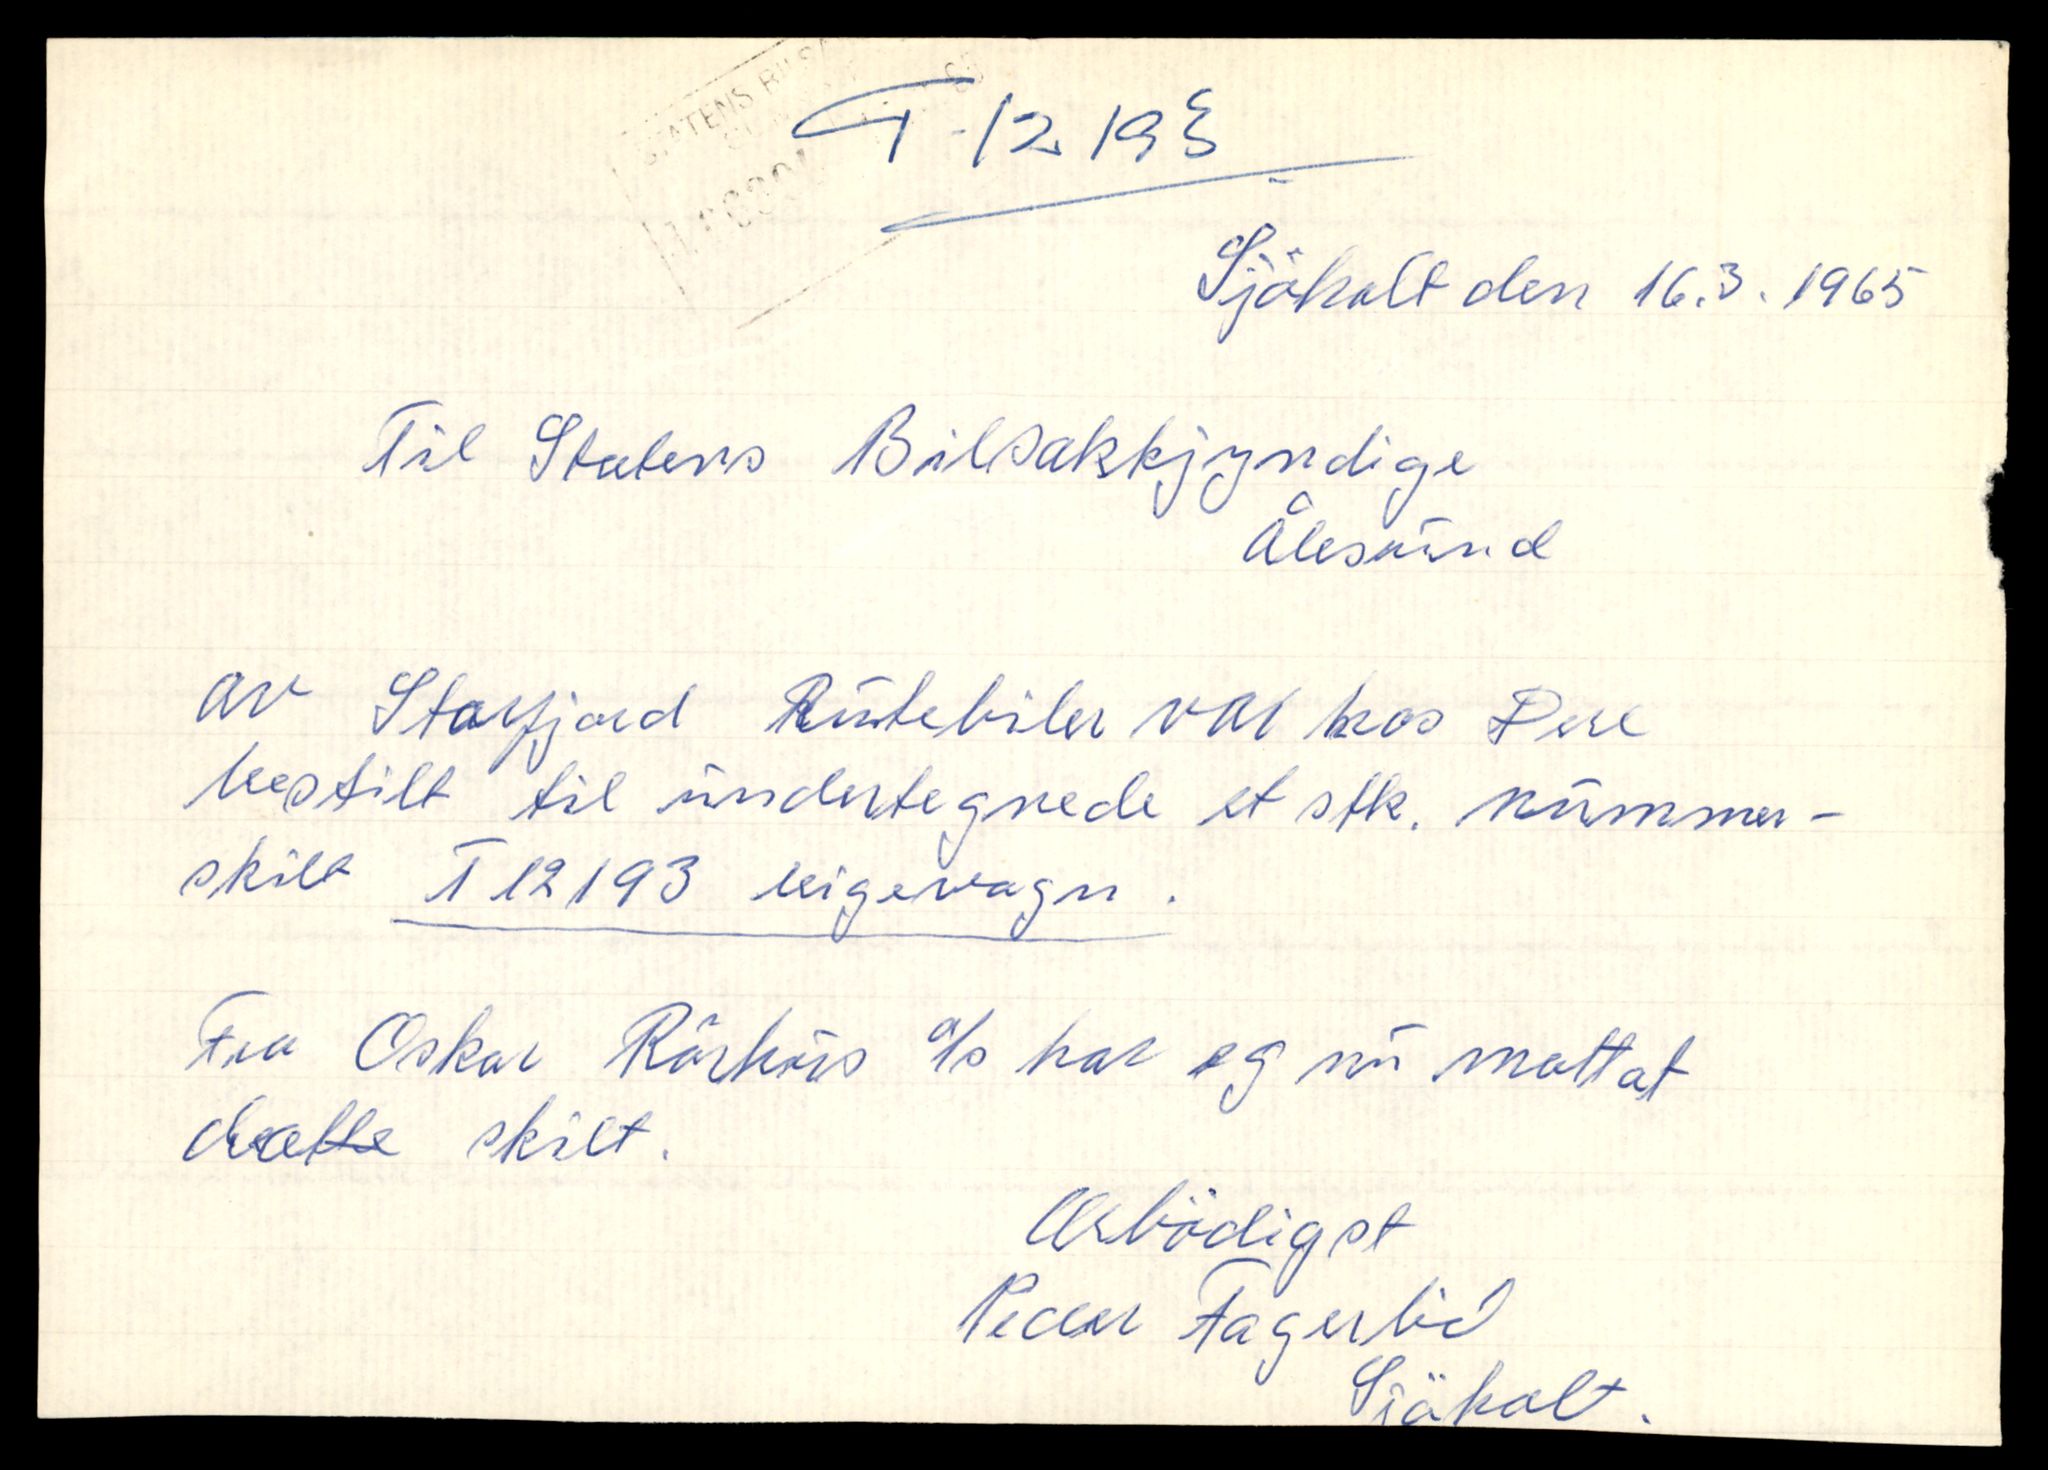 STATENS BILSA
T-12193
Sjöholt den 16.3.1965
Til Statens Bilsakkjyndige
Ålesund
av Storfjord Rutebiler var hos Dere
bestilt til undertegnede et stk. nummer-
skilt T 12193 leigevagn.
Fra Oskar Rörhus a/s har eg nu mottat
dette skilt.
Ærbödigst
Peder Fagerlid
Sjöholt.